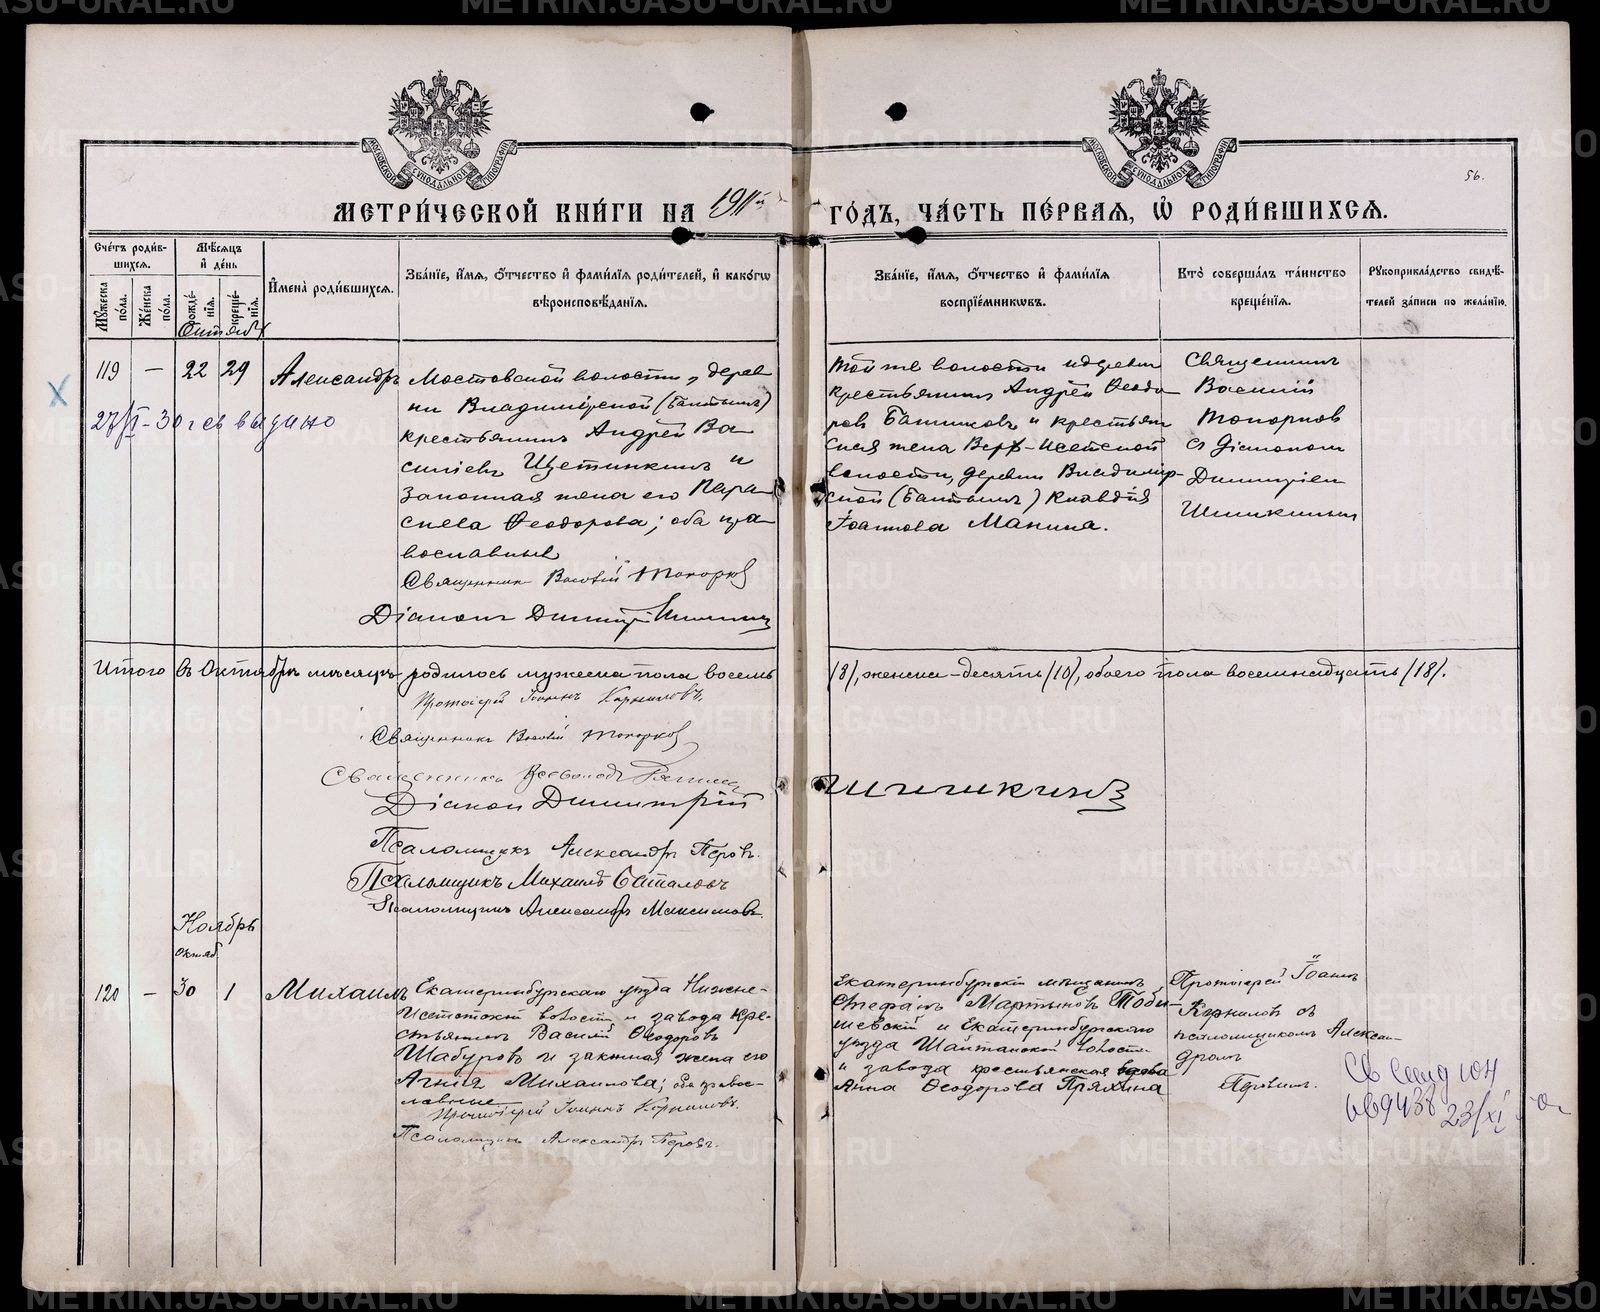 МЕТРИ́ЧЕСКОЙ КНИ́ГИ НА 1911й ГО́ДЪ, ЧА́СТЬ ПЕ́РВАЯ, Ѡ РОДИ́ВШИХСЯ.
56.
Сче́тъ роди́вшихся.
Мѣ́сяцъ и́ де́нь
И́мена̀ роди́вшихся.
Зва́нїе, и́мя, о́тчество и́ фами́лїя роди́телей, и́ како́гѡ вѣроисповѣ́данїя.
Зва́нїе, и́мя, о́тчество и́ фами́лїя воспрїе́мниковъ.
Кто̀ соверша́лъ та́инство креще́нїя.
Рꙋкоприкла́дство свидѣ́телей за́писи по жела́нїю.
Мꙋ́жеска по́ла.
Же́нска по́ла.
рожде́нїя.
креще́нїя.
Октябрь
119 — 22 29
Александръ
Мостовской волости, дерев
ни Владимірской (Балтымъ)
крестьянинъ Андрей Ва
сильевъ Щетинкинъ и
законная жена его Пара
скева Ѳеодорова; оба пра
вославные
Священник Василій Топорков
Діаконъ Димитрій Шишкинъ
Той же волости и деревни
крестьянинъ Андрей Ѳеодо
ровъ Батиковъ и крестьян
ская жена Верх-Исетской
волости, деревни Владимір-
ской (Балтымъ) Клавдія
Іоаннова Манина.
Священникъ
Василій
Топорков
съ Діакономъ
Димитріем
Шишкинымъ
27/II - 30 г св выдано
Итого въ Октябрѣ мѣсяцѣ родилось мужеска пола восемь /8/, женска - десять /10/, обоего пола восемнадцать /18/.
Протоіерей Іоаннъ Корниловъ.
Священникъ Василій Топорков
Священникъ Всеволодъ
Діакон Димитрій Шишкинъ
Псаломщикъ Александръ Перовъ.
Псаломщикъ Михаилъ Баталовъ
Псаломщикъ Александръ Максимовъ.
Ноябрь
октяб.
120 — 30 1
Михаилъ
Екатеринбургскаго уѣзда Нижне-
Исетской волости и завода кре-
стьянинъ Василій Ѳеодоровъ
Шабуровъ и законная жена его
Агнія Михаилова; оба правос-
лавные
Протоіерей Іоаннъ Корниловъ.
Псаломщикъ Александръ Перовъ.
Екатеринбургскій мѣщанинъ
Стефанъ Мартыновъ Тоби-
шевскій и Екатеринбургскаго
уѣзда Шайтанской волости
и завода крестьянская вдова
Анна Ѳеодорова Пряхина
Протоіерей Іоаннъ
Корниловъ съ
псаломщикомъ Алексан-
дромъ
Перовымъ.
Св
669438 23/XI 50г